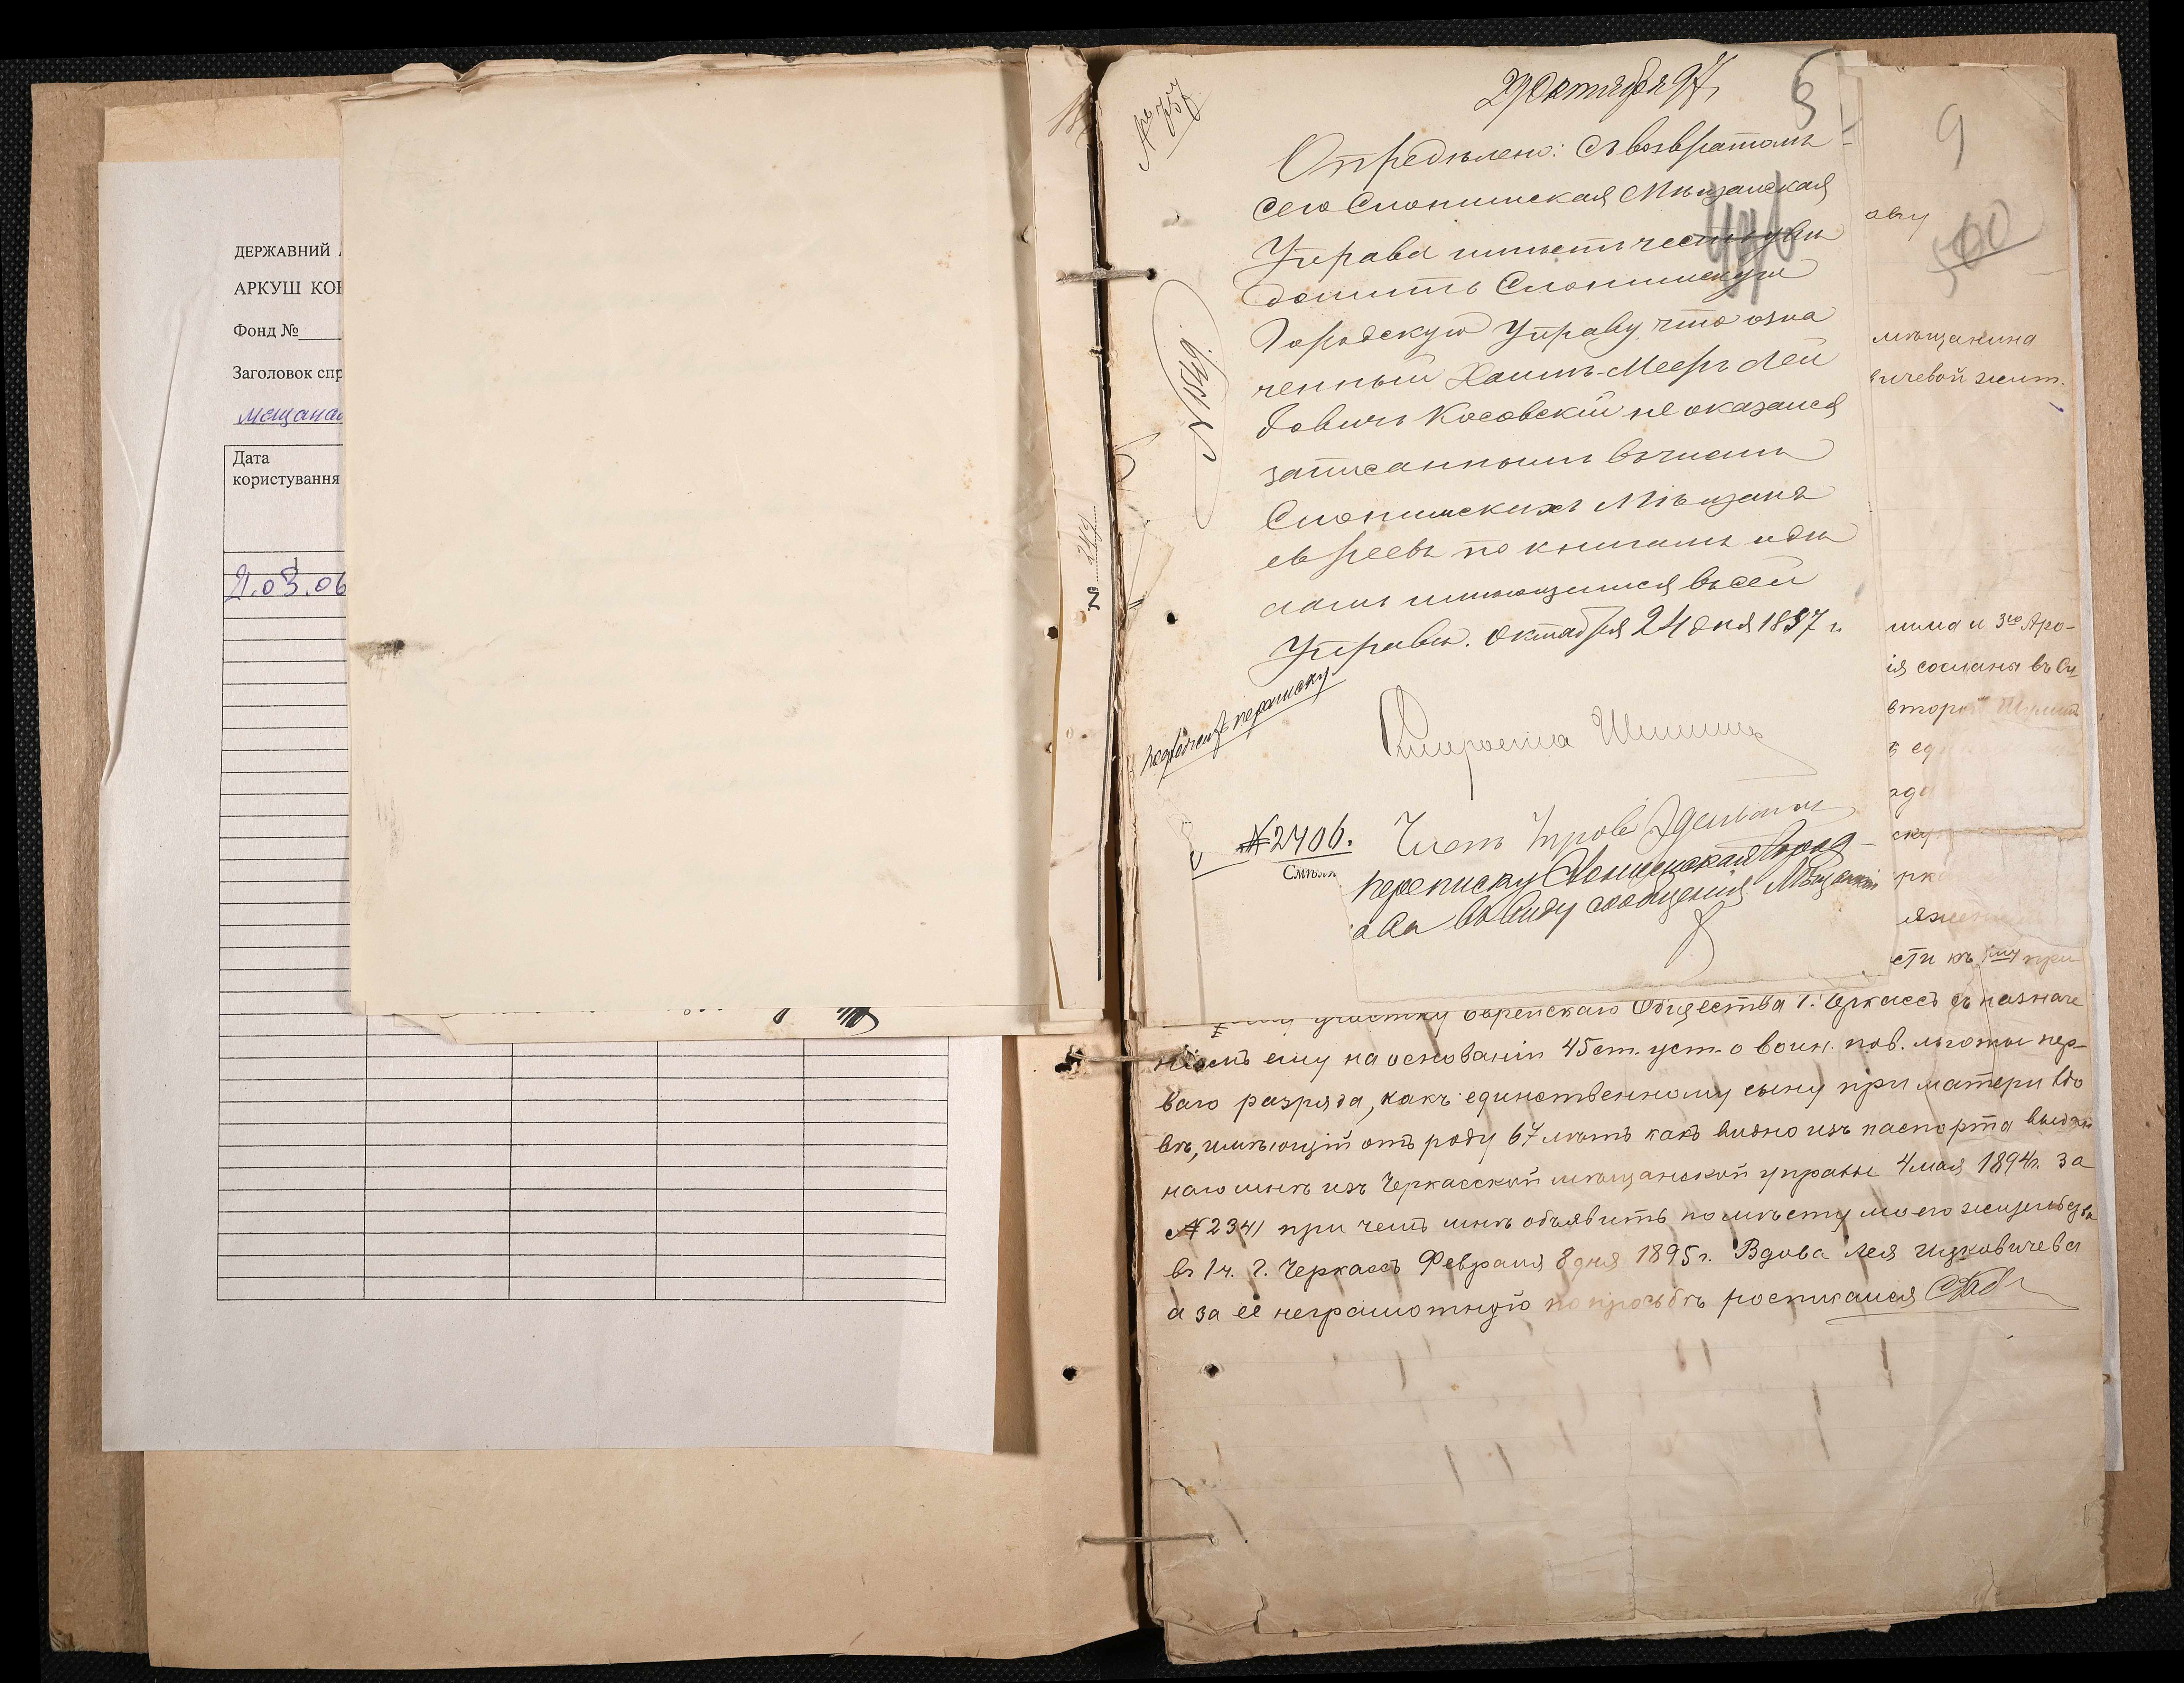 ДЕРЖАВНИЙ
АРКУШ КОР
Фонд №
Заголовок спр
мещанск
Дата
користування
2.03.06
№ 244
№ 757
29 Октября 97
9
Опредѣлено: съ возвратомъ
сего Слонимская Мѣщанская
Управа имѣетъ честь увѣ
домить Слонимскую
Городскую Управу, что озна
ченный Хаимъ-Мееръ Лей
бовичъ Косовскій не оказался
записаннымъ въ числѣ
Слонимскихъ Мѣщанъ
евреевъ по книгамъ и дѣ
ламъ имѣющимся въ сей
Управѣ. Октября 24 дня 1897 г.
Староста
№ 2406.
переписку Слонимская Город
ава въ виду сообщенія Мѣщанской
ову
мѣщанина
вичевой жит.
лима и 3го Аро-
ія сослана въ Си
второй
сти къ 1му при
участку Еврейскаго Общества г. Черкассъ съ назначе
ніемъ ему на основаніи 45 ст. уст. о воин. пов. льготы пер-
ваго разряда, какъ единственному сыну при матери вдо
вѣ, имѣющій отъ роду 67 лѣтъ какъ видно изъ паспорта выдан
наго мнѣ изъ Черкасской мѣщанской управы 4 мая 1894 г. за
№ 2341 при чемъ мнѣ объявить по мѣсту моего жительства
въ 1 ч. г. Черкассъ Февраля 8 дня 1895 г. Вдова Лея Ицковичева
а за её неграмотную по просьбѣ росписался